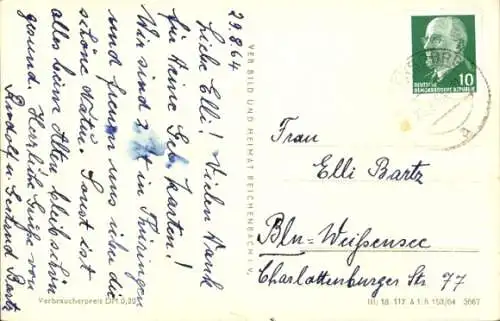 29.8.64
Liebe Elli! Vielen Dank
für Deine Geb. Karten!
Wir sind z. Zt in Thüringen
und freuen uns über die
schöne Natur. Sonst ist
alles beim Alten bleib schön
gesund. Herzliche Grüße von
Rudolf u. Gertrud Bartz
Verbraucherpreis DM 0,20
VEB BILD UND HEIMAT REICHENBACH I. V.
10
DEUTSCHE
DEMOKRATISCHE REPUBLIK
Frau
Elli Bartz
Bln-Weißensee
Charlottenburger Str 77
III/18/117 A 1 B 153/64 3667